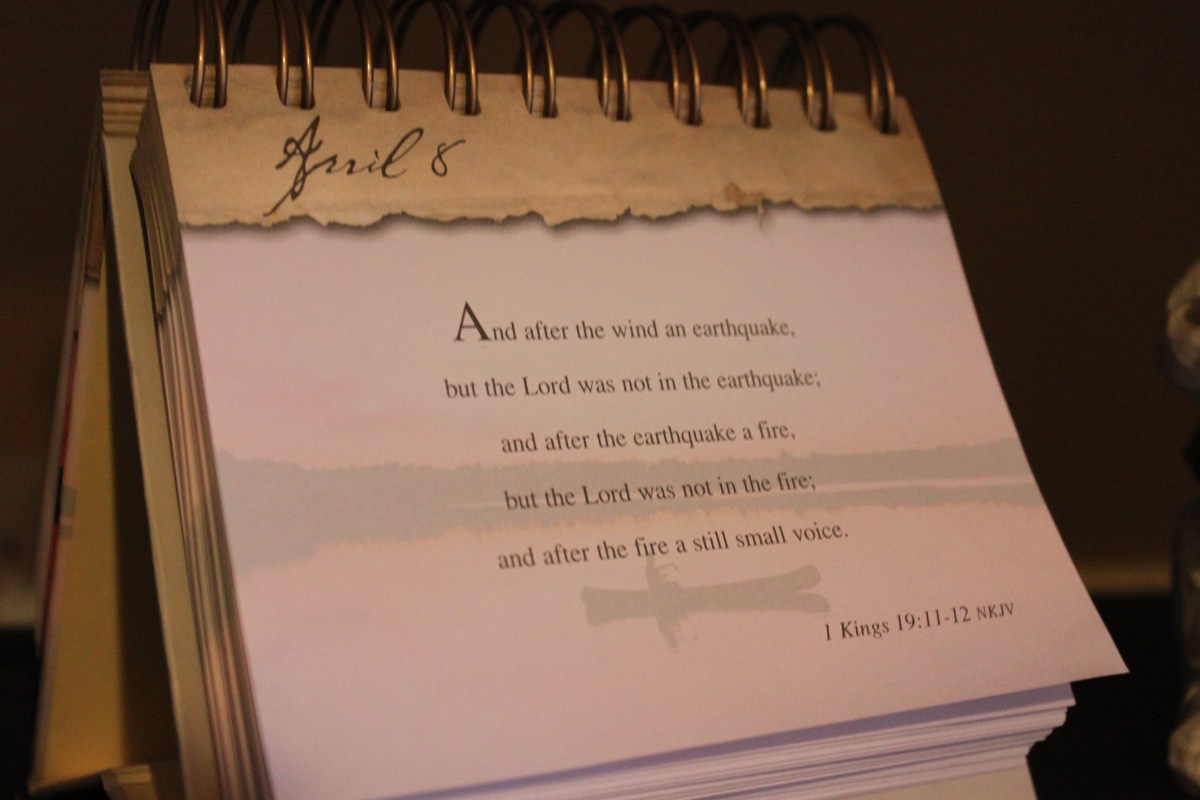 April 8
And after the wind an earthquake,
but the Lord was not in the earthquake;
and after the earthquake a fire,
but the Lord was not in the fire;
and after the fire a still small voice.
1 Kings 19:11-12 NKJV